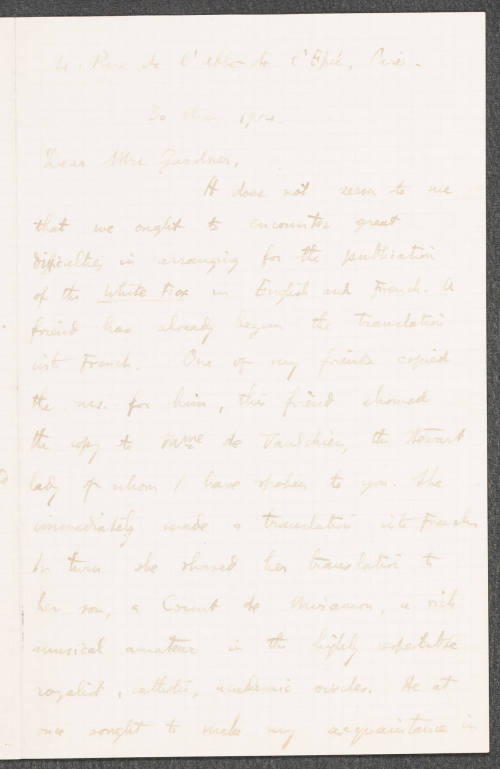 4 Rue de l'abbé de l'Epée, Paris.
30 1914.
Dear Mrs Gardner,
It does not seem to me
that we ought to encounter great
difficulties in arranging for the publication
of the White Fox in English and French. A
friend has already begun the translation
into French. One of my friends copied
the ms. for him, this friend showed
the copy to Mme de the
lady of whom I have spoken to you. She
immediately made a translation into French
In turn she showed her translation to
her son, a Count de a rich
musical amateur in the highly respectable
royalist, catholic, academic circles. He at
once sought to make my acquaintance in